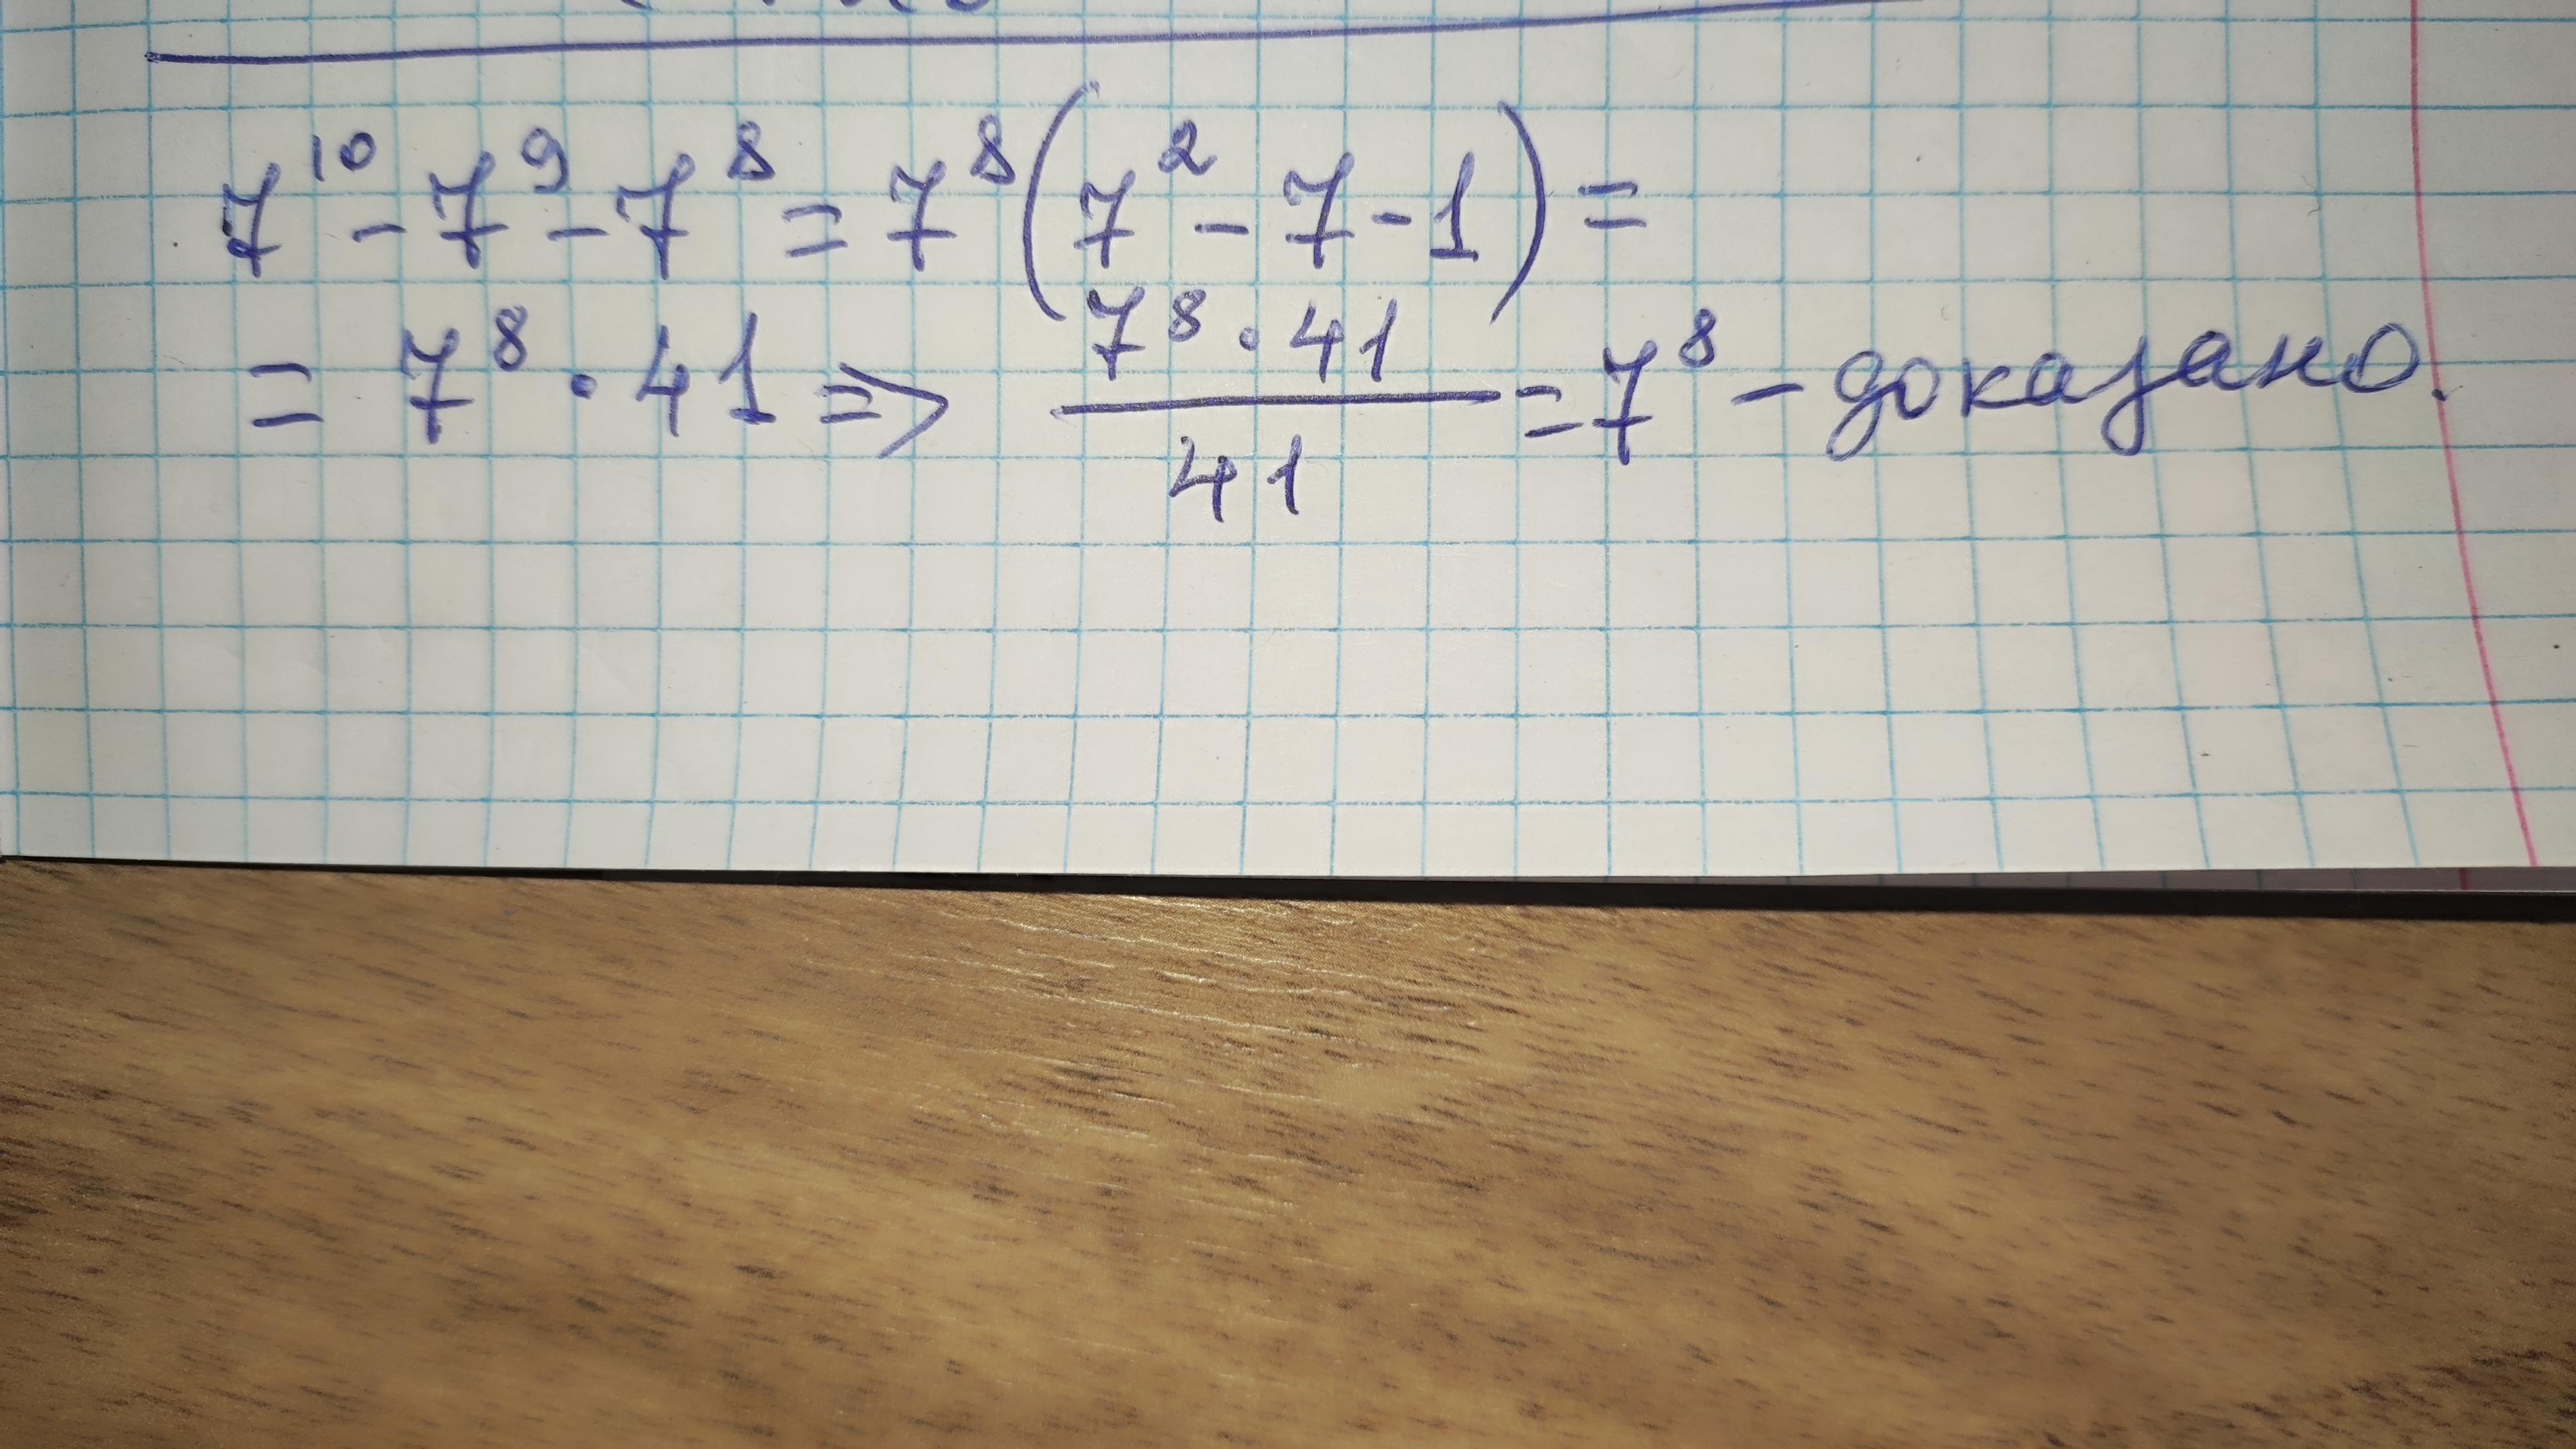 7¹⁰ - 7⁹ - 7⁸ = 7⁸(7² - 7 - 1) =
= 7⁸ · 41 => (7⁸ · 41)/41 = 7⁸ - доказано.